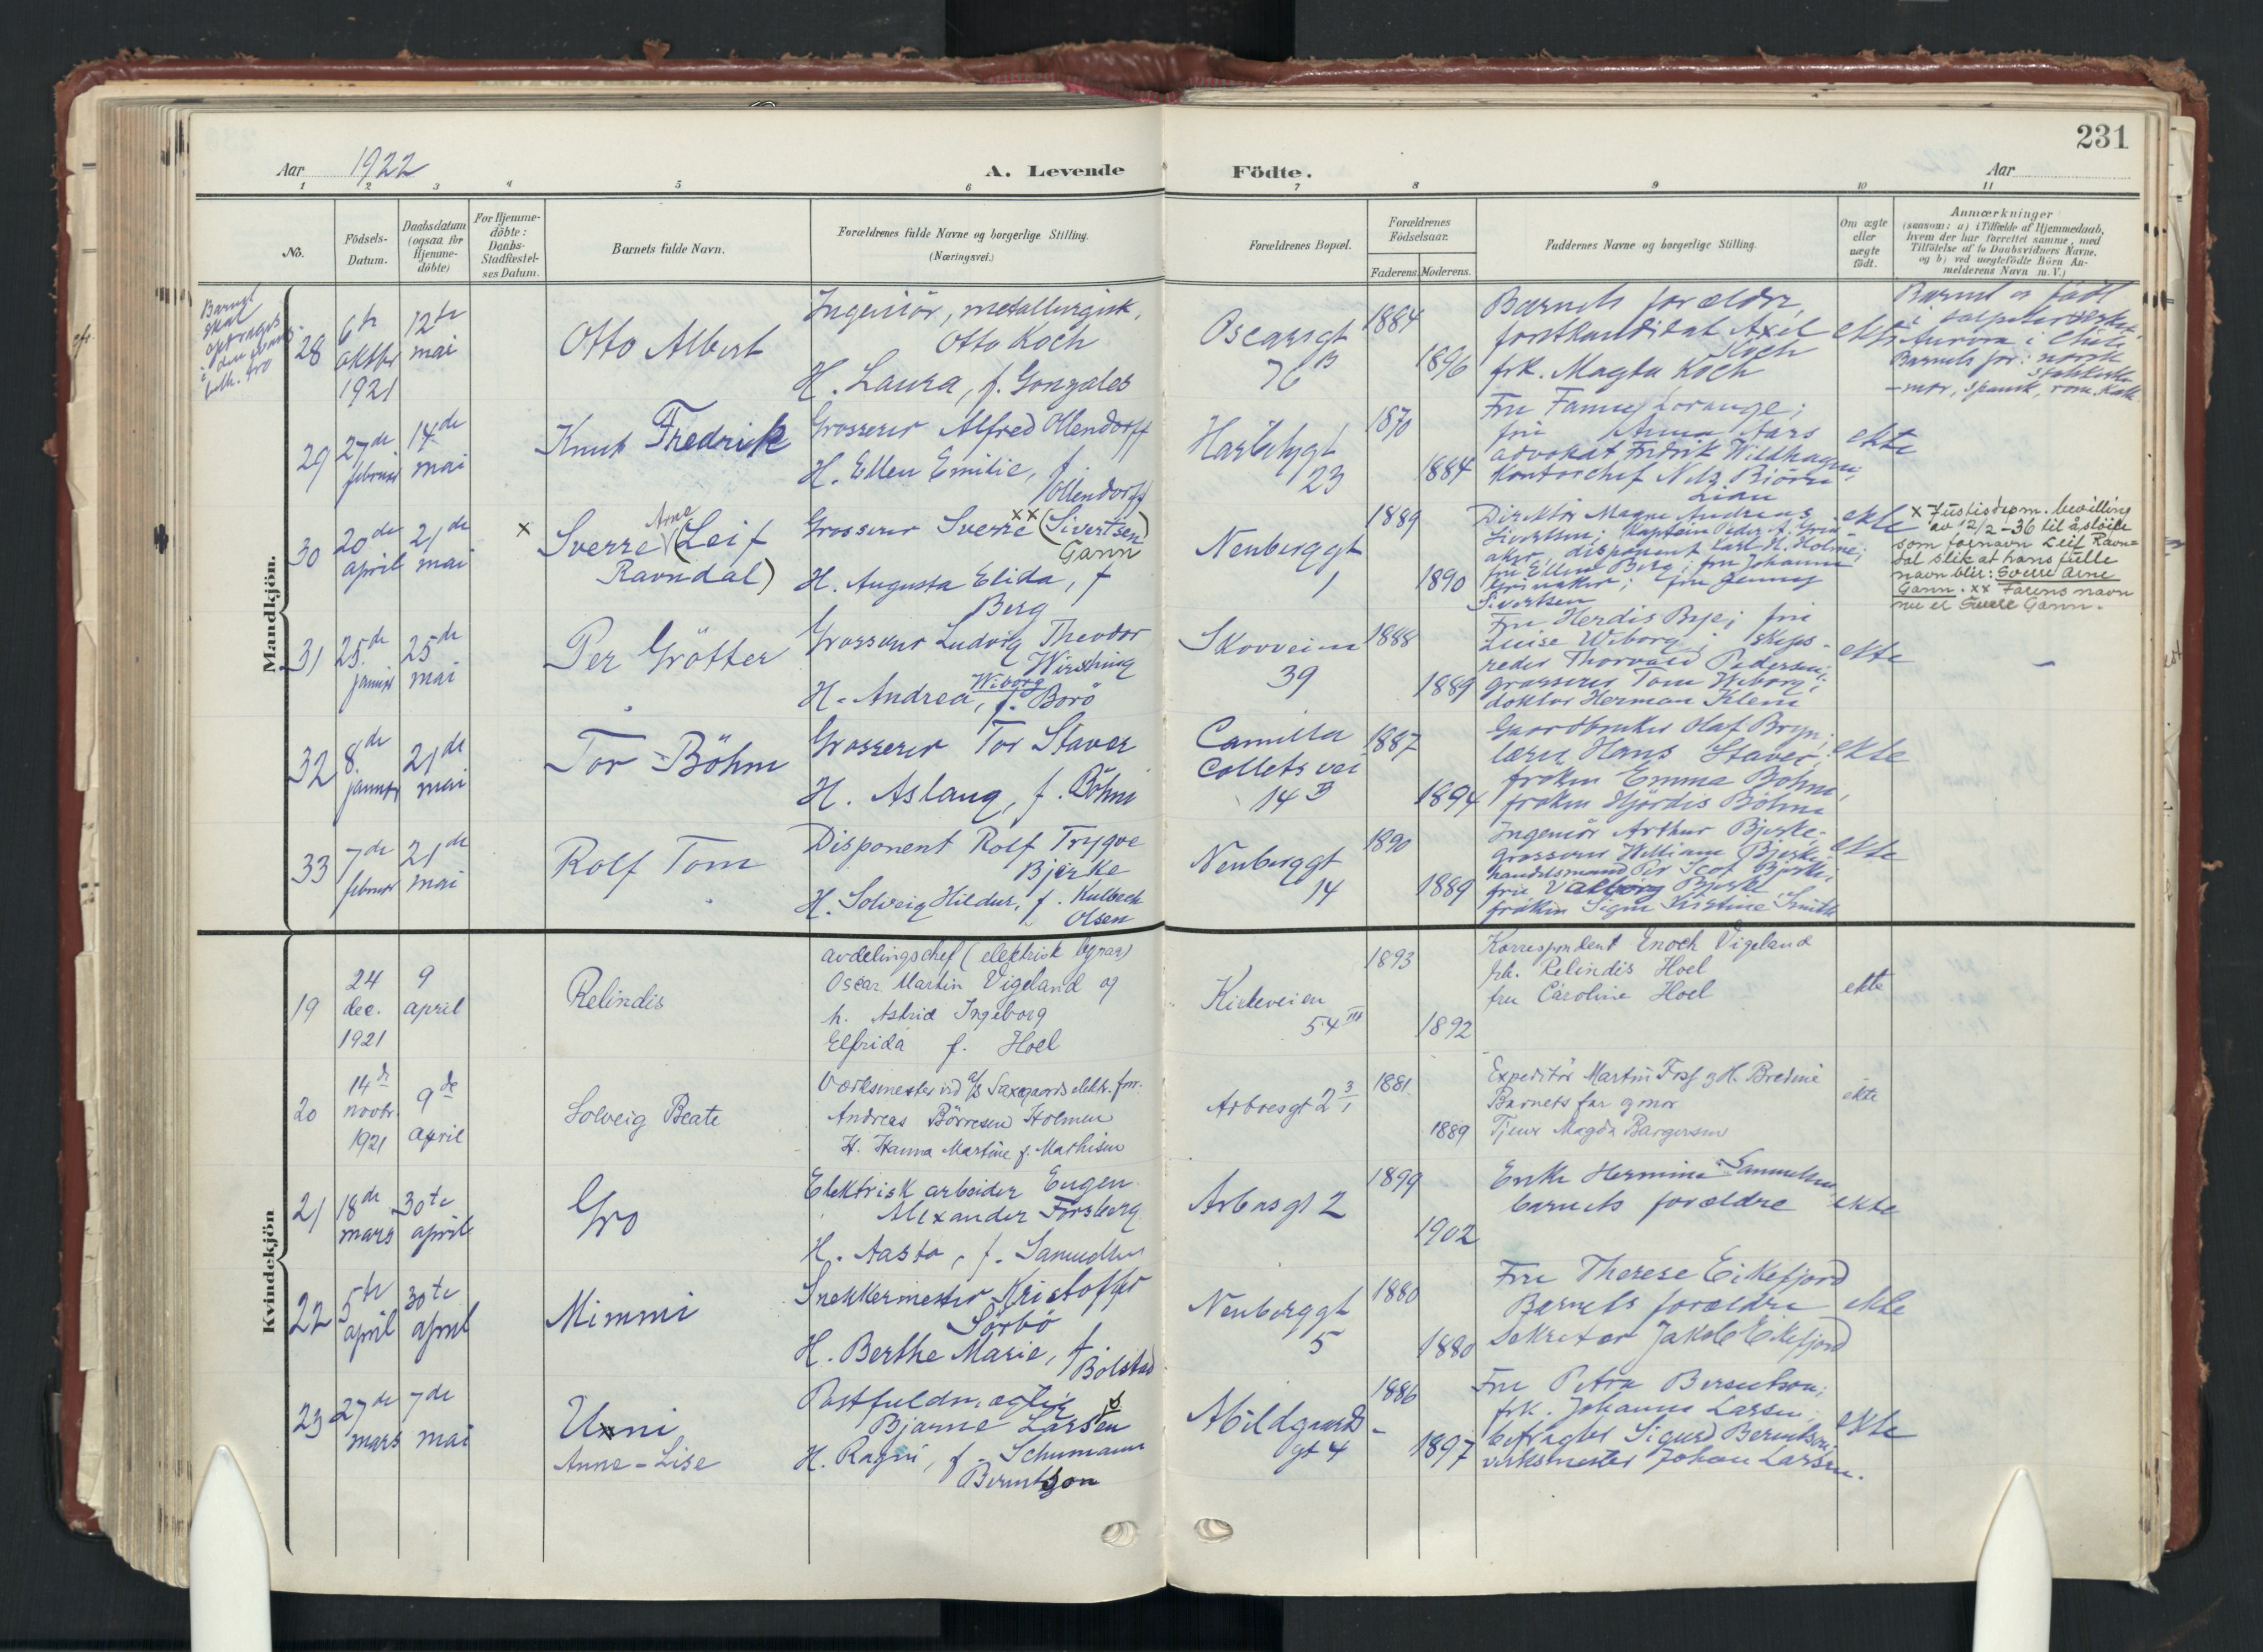 231
Aar 1922
A. Levende
Födte.
Aar
1 2 3 4 5 6 7 8 9 10 11
No.
Födsels-
Datum.
Daabsdatum
(ogsaa for
Hjemme-
döbte)
For Hjemme-
döbte:
Daabs-
Stadfæstel-
ses Datum.
Barnets fulde Navn.
Forældrenes fulde Navne og borgerlige Stilling.
(Næringsvei.)
Forældrenes Bopæl.
Forældrenes
Födselsaar.
Faderens. Moderens.
Faddernes Navne og borgerlige Stilling.
Om ægte
eller
uægte
födt.
Anmærkninger
(saasom: a) i Tilfælde af Hjemmedaab,
hvem der har forrettet samme, med
Tilföielse af to Daabsvidners Navne,
og b) ved uegtefödte Börn An-
melderens Navn m. V.)
Mandkjön.
Barnet
skal
opdrages
i den
kath. tro
28
6te
oktbr
1921
12te
mai
Otto Albert
Ingeniör, metallurgisk,
Otto Koch
H. Laura, f. Gonzales
Oscarsgt
76 B
1884
1896
Barnets forældre,
forstkandidat Axel
Koch
frk. Magda Koch
ekte
Barnet er født
i salpeterverket
Aurora i Chile
Barnets far: norsk
statskirke
- mor, spansk, rom. kath.
29
27de
februar
14de
mai
Knut Fredrik
Grosserer Alfred Ollendorff
H. Ellen Emilie, f.
Ollendorff
Harbitzgt
23
1870
1884
Fru Fanny Lorange;
fru Anna Aars
advokat Fredrik Wildhagen;
Kontorchef Nils Björn
Lian
ekte
30
20de
april
21de
mai
x
Arne
Sverre (Leif
Ravndal)
Grosserer Sverre xx (Sivertsen)
Gann
H. Augusta Elida, f
Berg
Neuberggt
1
1889
1890
Direktör Magne Andreas
Sivertsen; Kaptein Peder A. Grin-
aker, disponent Carl H. Holme;
fru Ellen Berg; fru Johanna
Grinaker; fru Jenny
Sivertsen
ekte
x Justisdepm. bevilling
av 12/2-36 til å sløife
som fornavn Leif Ravn-
dal slik at hans fulle
navn blir: Sverre Arne
Gann. xx Farens navn
nu er Sverre Gann.
31
25de
januar
25de
mai
Per Grötter
Grosserer Ludvig Theodor
Wirsching
Wiborg
H. Andrea, f. Borö
Skovveien
39
1888
1889
Fru Herdis Bye; fru
Luise Wiborg; skips-
reder Thorvald Pedersen;
grosserer Tom Wiborg;
doktor Herman Klem
ekte
-
32
8de
januar
21de
mai
Tor Böhm
Grosserer Tor Staver
H. Aslaug, f. Böhm
Camilla
Collets vei
14 B
1887
1894
Gaardbruker Olaf Bryn;
lærer Hans Staver;
frøken Emma Bøhm,
frøken Hjördis Böhm
ekte
33
7de
februar
21de
mai
Rolf Tom
Disponent Rolf Trygve
Bjerke
H. Solveig Hildur, f. Kulbech
Olsen
Neuberggt
14
1890
1889
Ingeniör Arthur Bjerke;
grosserer William Bjerke;
handelsmand Per Scot Bjerke;
fru Valborg Bjerke
frøken Signe Kristine Smith
ekte
Kvindekjön
19
24
dec.
1921
9
april
Relindis
avdelingschef (elektrisk byraa)
Oscar Martin Vigeland og
h. Astrid Ingeborg
Elfrida f. Hoel
Kirkeveien
54 III
1893
1892
Korrespondent Enoch Vigeland
frk. Relindis Hoel
fru Caroline Hoel
ekte
20
14de
novbr
1921
9de
april
Solveig Beate
Verksmester ved a/s Saxegaards elektr. forr.
Andreas Börresen Holmen
H. Hanna Martine f. Mathisen
Arboesgt 2 3/1
1881
1889
Expeditör Martin Foss og H. Bredine
Barnets far og mor
Tjener Magda Børgersen
ekte
21
18de
mars
30te
april
Gro
Elektrisk arbeider Eugen
Alexander Forsberg
H. Aasta, f. Samuelsen
Arbosgt 2
1899
1902
Enke Hermine Samuelsen
barnets forældre
ekte
22
5te
april
30te
april
Mimmi
Snekkermester Kristoffer
Sörbö
H. Berthe Marie, f.
Bolstad
Neuberggt
5
1880
1880
Fru Therese Eikefjord
Barnets forældre
Sekretær Jakob Eikefjord
ekte
23
27de
mars
7de
mai
Unni
Anne-Lise
Postfuldmægtig
Bjarne Larsen
H. Ragni, f. Schumann
Berntson
Abildgaards-
gt 4
1886
1897
Fru Petra Berntson;
frk. Johanna Larsen;
befragter Sigurd Berntson;
verksmester Johan Larsen.
ekte